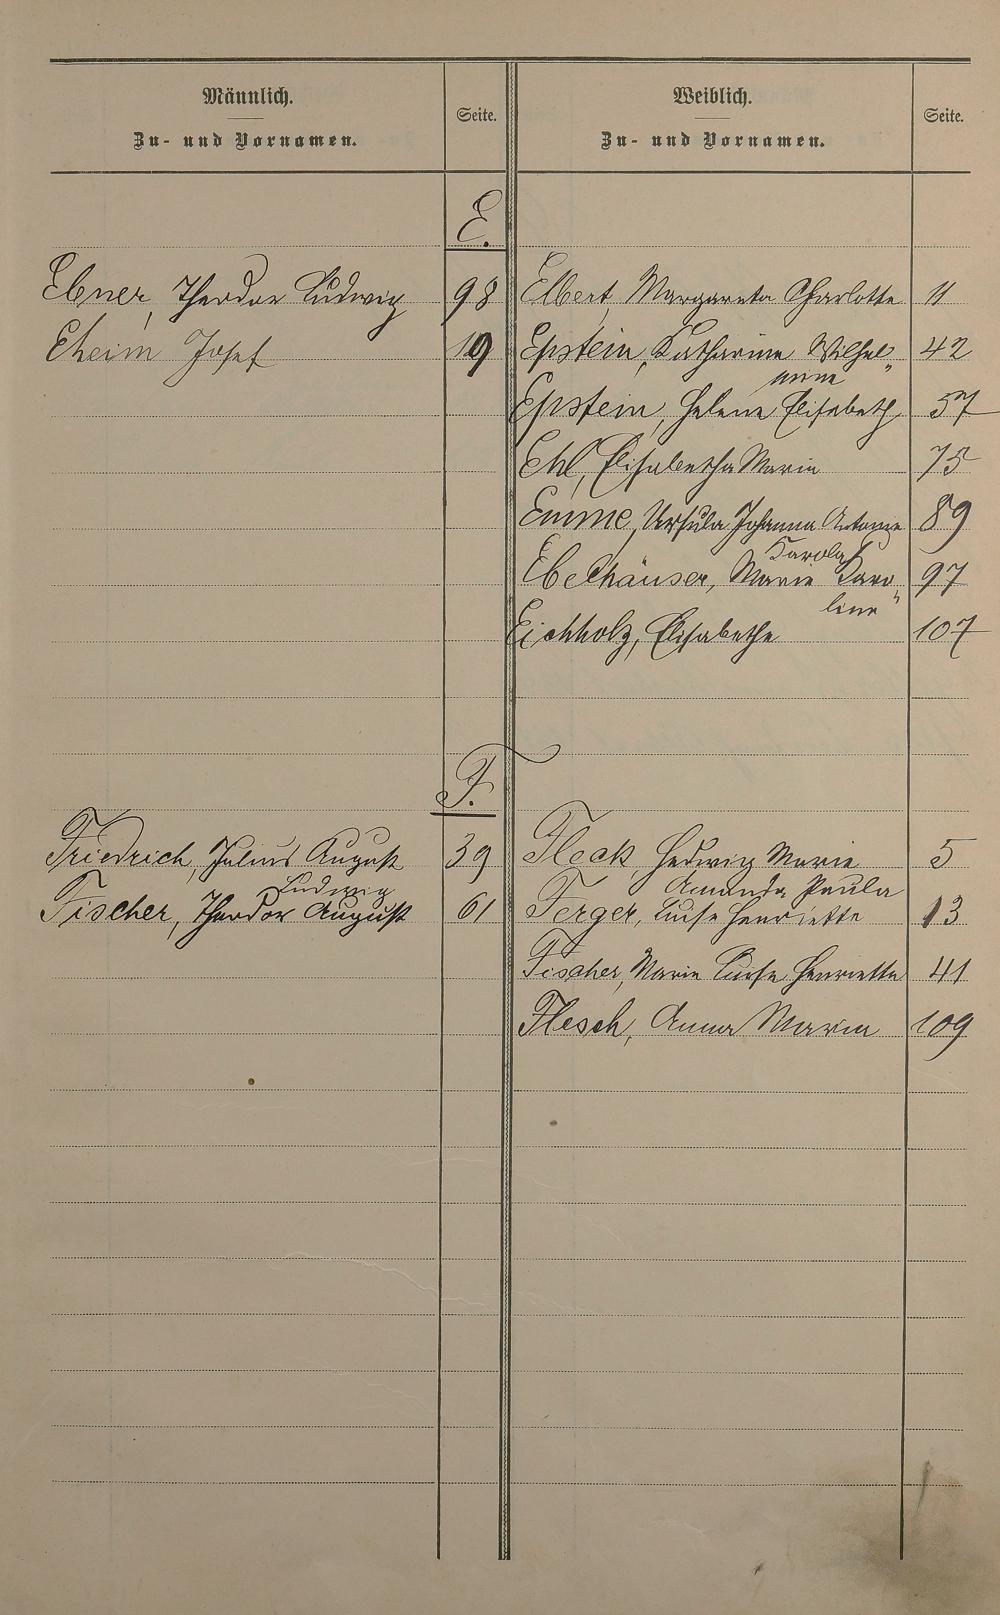 Männlich.
Zu- und Vornamen.
Seite.
Weiblich.
Zu- und Vornamen.
Seite.
E.
Ebner, Theodor Ludwig 98
Elbert, Margareta Charlotte 11
Eheim Josef 19
Epstein, Katharina Wilhel„ 42
mine
Epstein, Helene Elisabeth 57
Ehl, Elisabetha Maria 75
Emme, Ursula Johanna Antonie 89
Karola
Ebelhäuser, Marie Karo„ 97
line
Eichholz, Elisabethe 107
F.
Friedrich, Julius August 39
Fleck, Hedwig Marie 5
Ludwig
Fischer, Theodor August 61
Amanda Paula
Ferger, Luise Henriette 13
Fischer, Marie Luise Henriette 41
Flesch, Anna Maria 109